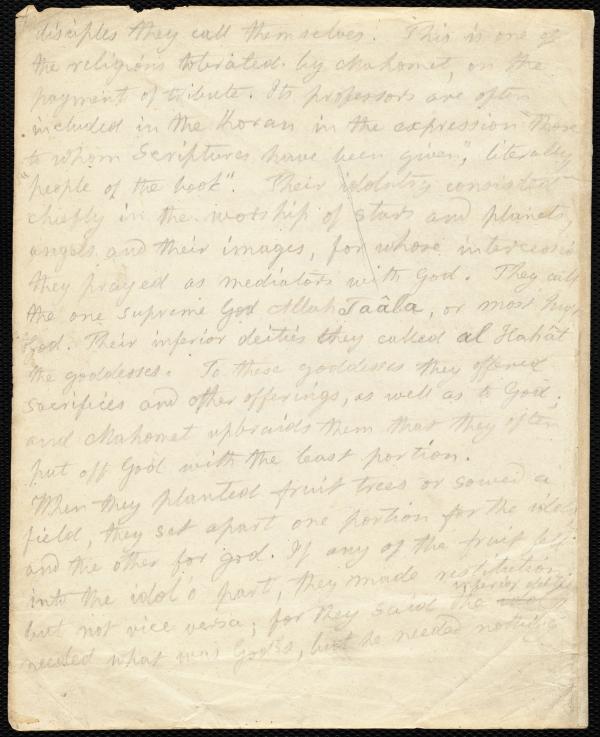 disciples they call themselves. This is one of
the religions tolerated by Mahomet, on the
payment of tribute. Its professors are often
included in the Koran in the expression "those
to whom Scriptures have been given", literally
"people of the book". Their idolatry consisted
chiefly in the worship of stars and planets,
angels and their images, for whose intercession
they prayed as mediators with God. They call
the one supreme God Allah Taâla, or most high
God. Their inferior deities they called al Hahât
the goddesses. To these goddesses they offered
sacrifices and other offerings, as well as to God;
and Mahomet upbraids them that they often
put off God with the least portion.
When they planted fruit trees or sowed a
field, they set apart one portion for the idols
and the other for god. If any of the fruit fell
into the idol's part, they made restitution
but not vice versa; for they said the inferior deities
needed what was God's, but he needed nothing